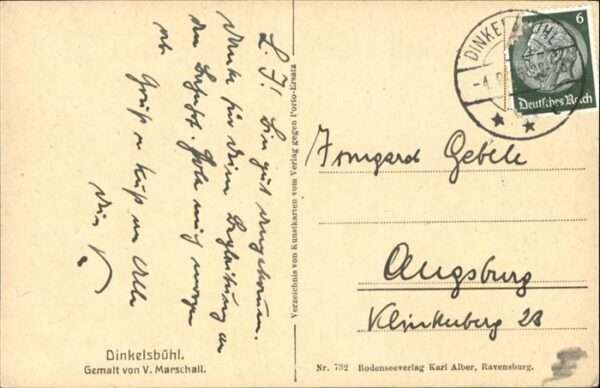 L. I! Bin gut angekommen.
Danke für Deine Begleitung an
den Bahnhof. Hole mich morgen
ab.
Gruß u. Kuß an Alle
Dein
Dinkelsbühl.
Gemalt von V. Marschall.
Verzeichnis von Kunstkarten vom Verlag gegen Porto-Ersatz
DINKEL
6
Deutsches Reich
Irmgard Gebele
Augsburg
Klinkerberg 23
Nr. 732 Bodenseeverlag Karl Alber, Ravensburg.